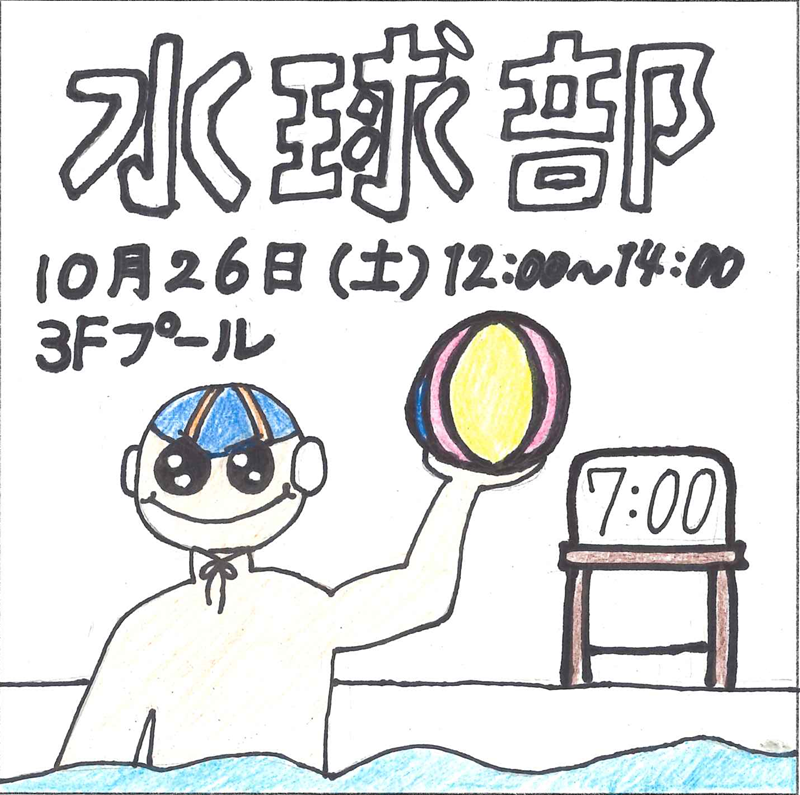 水球部
10月26日(土)12:00～14:00
3Fプール
7:00